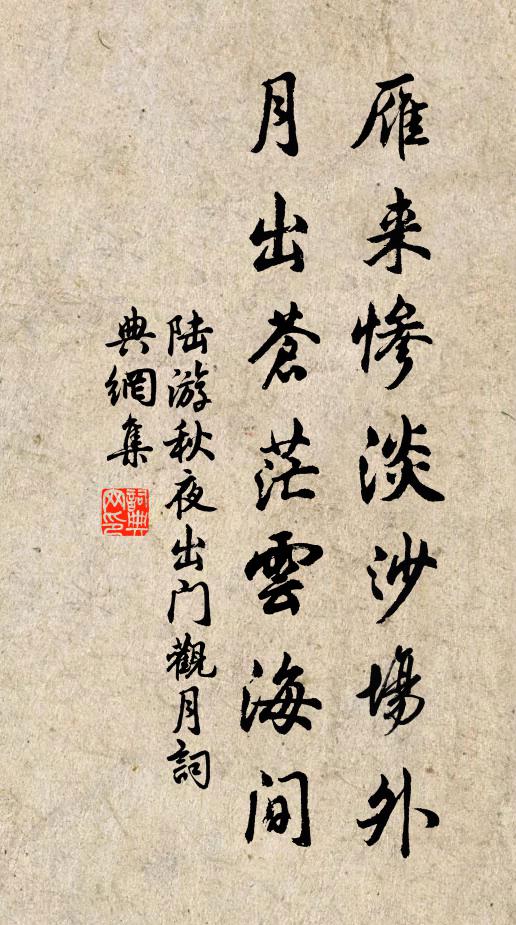 雁来惨淡沙場外
月出蒼茫雲海间
陆游秋夜出门觀月詞
典網集
詞典网印